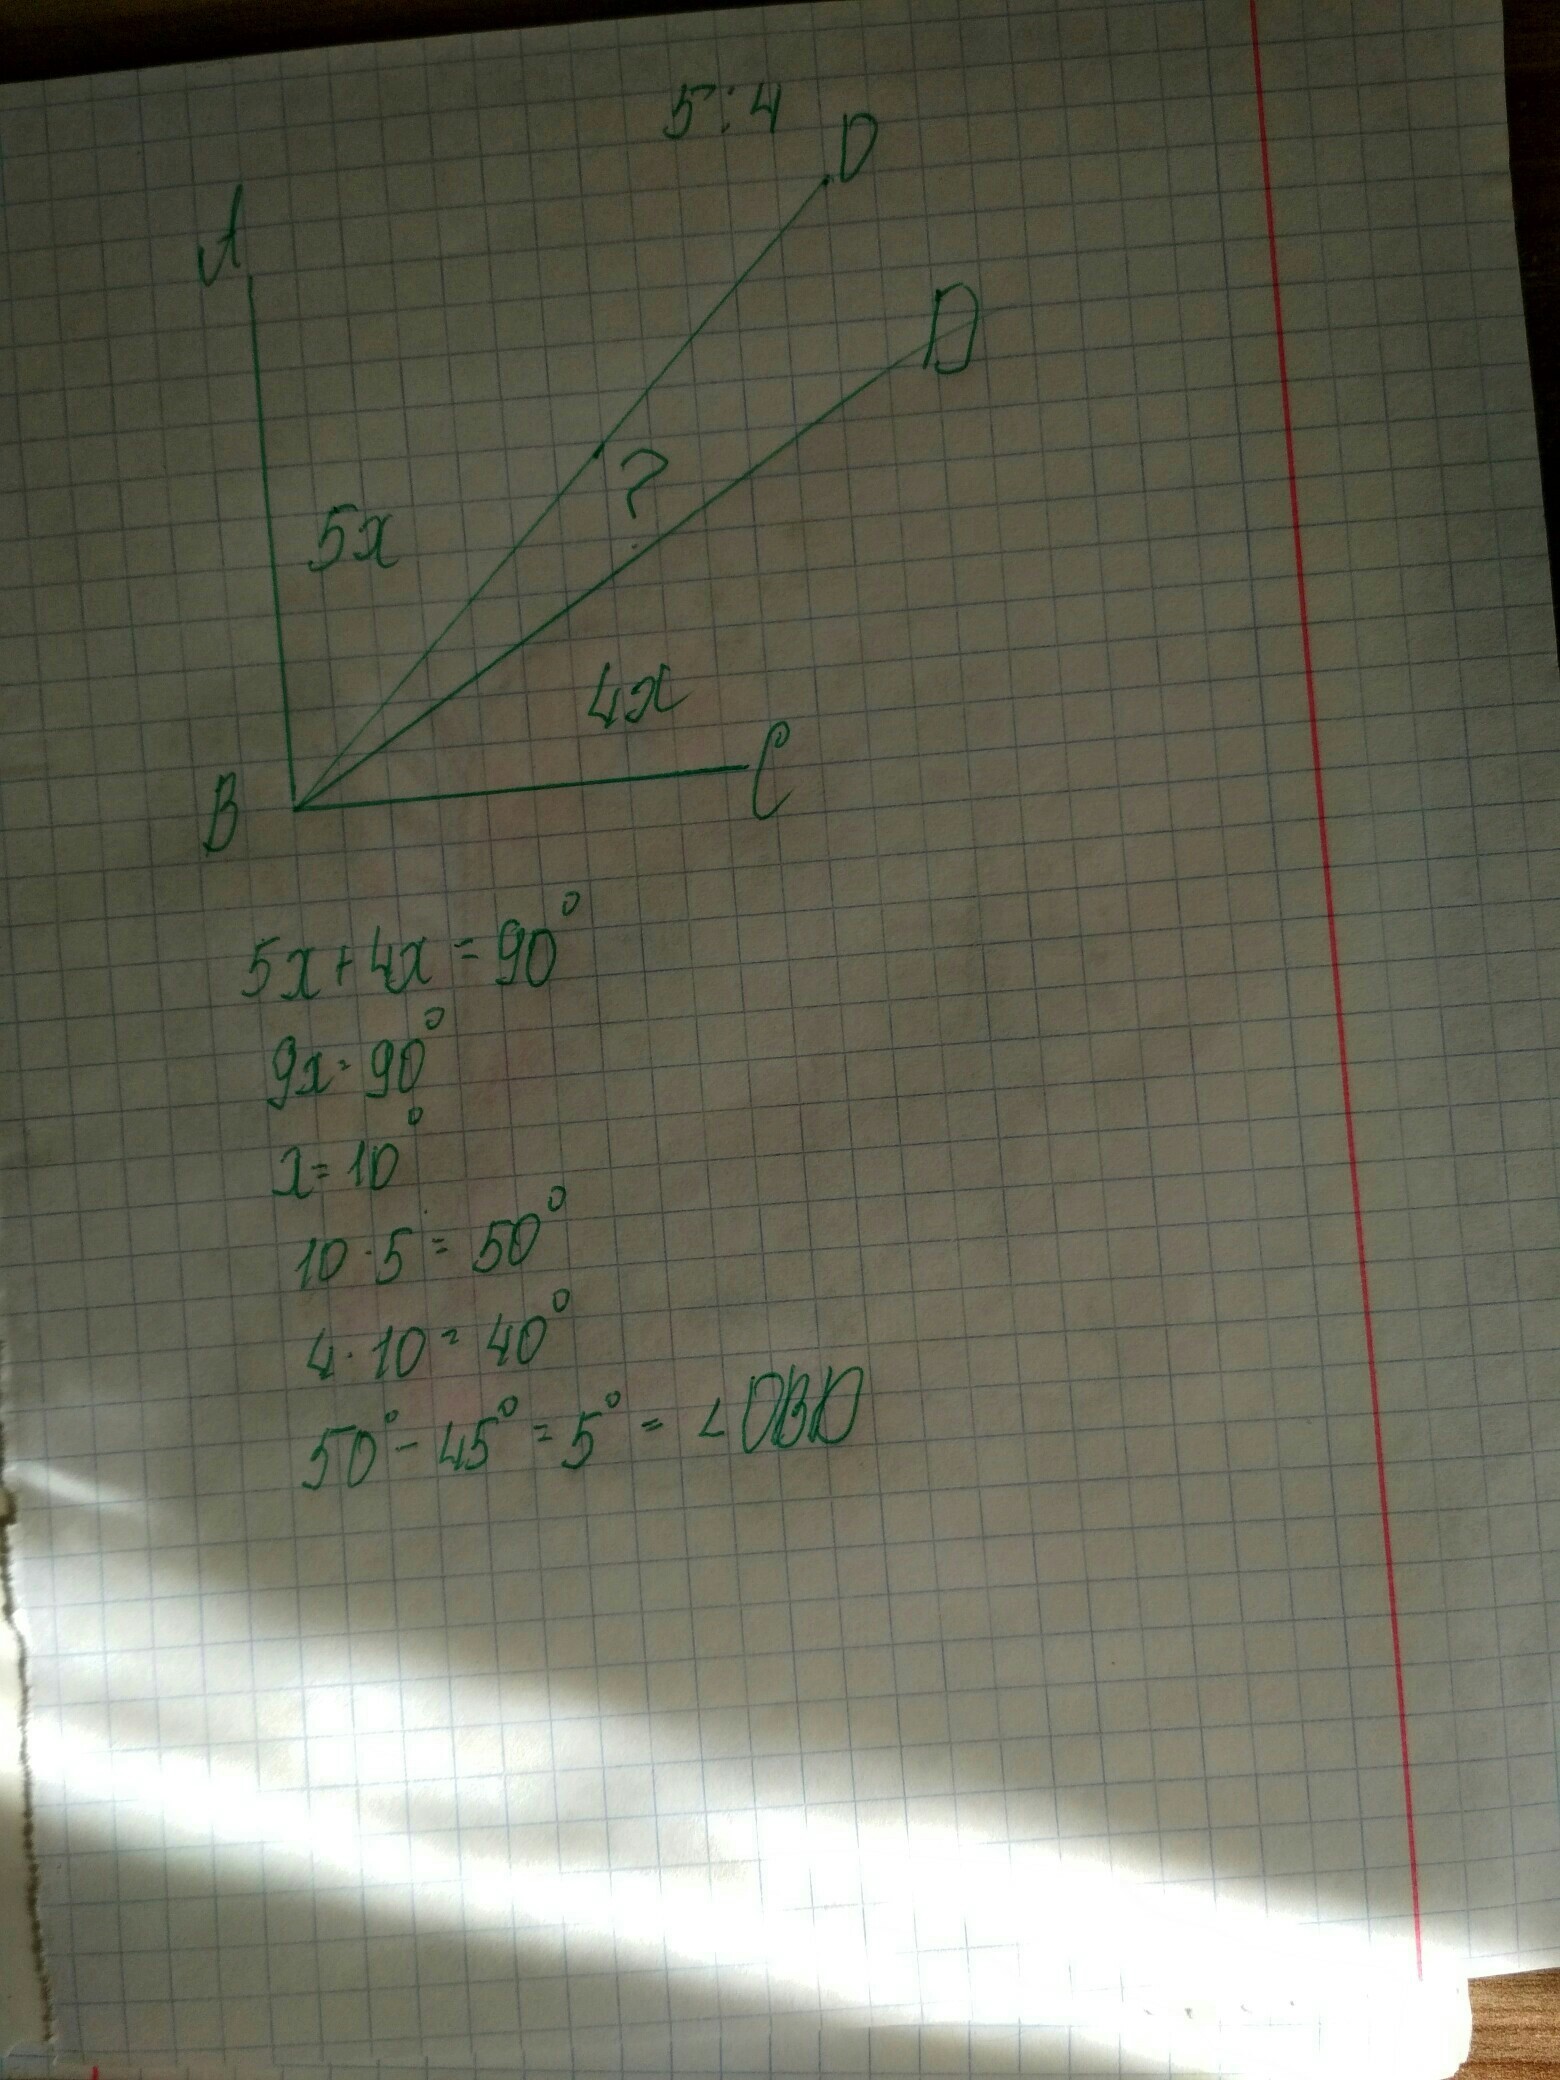 5:4
D
A
D
?
5x
4x
C
B
5x+4x=90°
9x=90°
x=10°
10·5=50°
4·10=40°
50°-45°=5°=∠DBD